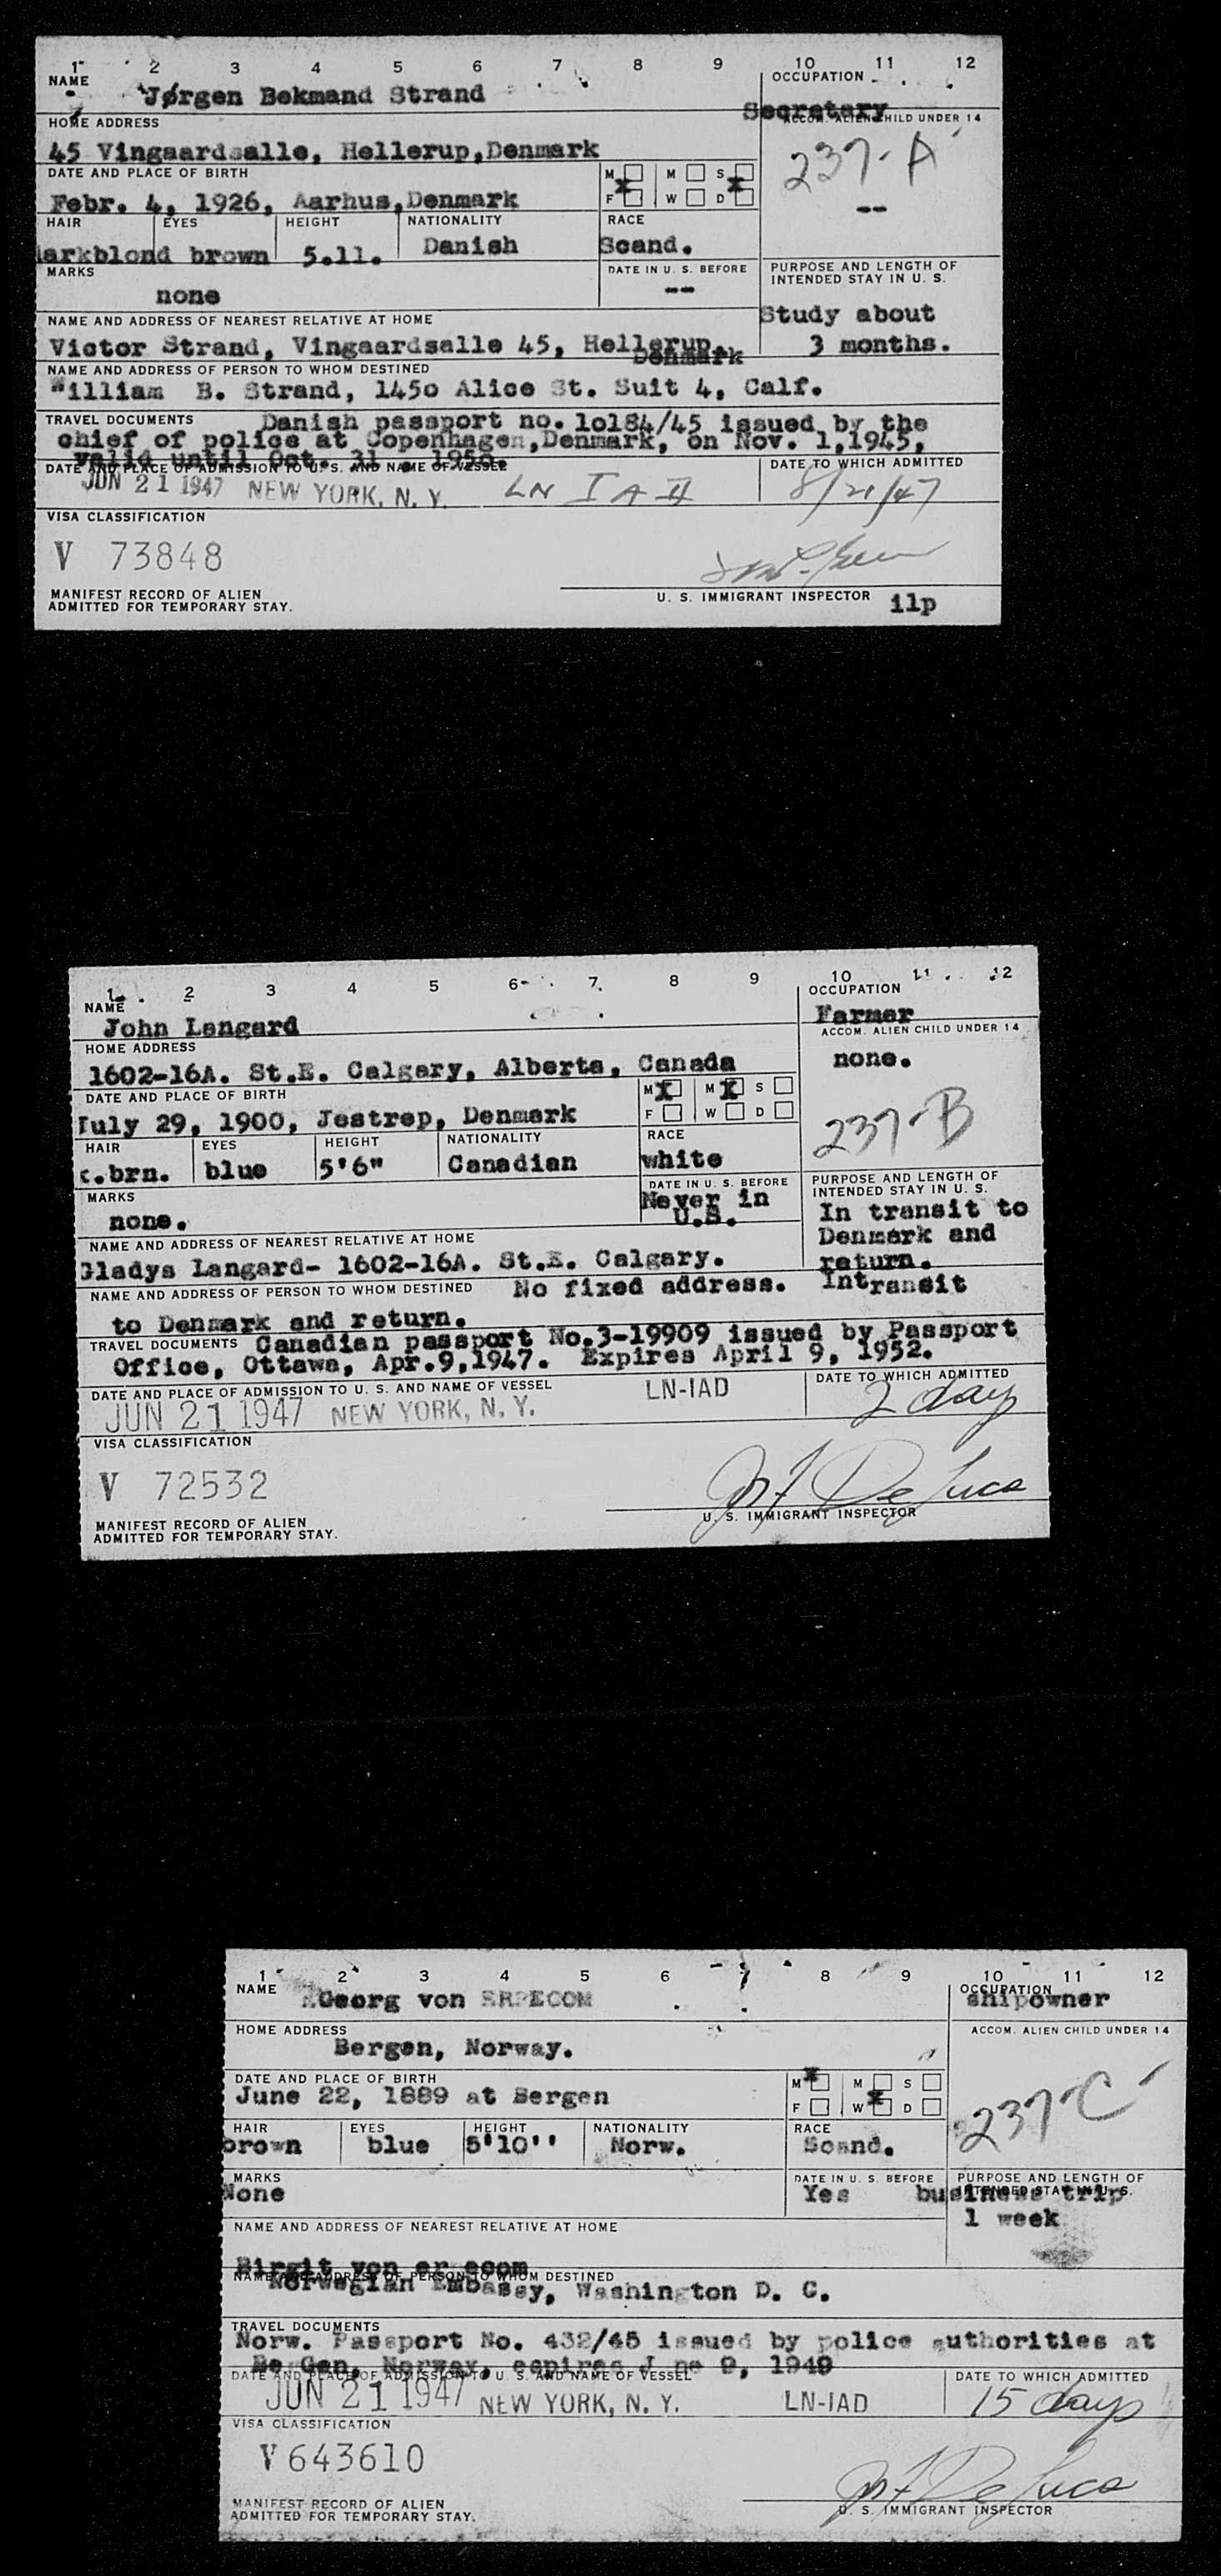 1 2 3 4 5 6 7 8 9 10 11 12
NAME OCCUPATION
Jørgen Bekmand Strand Secretary
HOME ADDRESS ACCOM. ALIEN CHILD UNDER 14
45 Vingaardsalle, Hellerup,Denmark 237-A
DATE AND PLACE OF BIRTH M M S
F W D
Febr. 4, 1926, Aarhus,Denmark --
HAIR EYES HEIGHT NATIONALITY RACE
arkblond brown 5.11. Danish Scand.
MARKS DATE IN U. S. BEFORE PURPOSE AND LENGTH OF
INTENDED STAY IN U. S.
none --
NAME AND ADDRESS OF NEAREST RELATIVE AT HOME Study about
Victor Strand, Vingaardsalle 45, Hellerup, 3 months.
Denmark
NAME AND ADDRESS OF PERSON TO WHOM DESTINED
William B. Strand, 145o Alice St. Suit 4, Calf.
TRAVEL DOCUMENTS Danish passport no. lol84/45 issued by the
chief of police at Copenhagen,Denmark, on Nov. 1,1945,
valid until Oct. 31 , 195o.
DATE AND PLACE OF ADMISSION TO U. S. AND NAME OF VESSEL DATE TO WHICH ADMITTED
JUN 21 1947 NEW YORK, N. Y. LN I A H 8/21/47
VISA CLASSIFICATION
V 73848
MANIFEST RECORD OF ALIEN
ADMITTED FOR TEMPORARY STAY.
U. S. IMMIGRANT INSPECTOR ilp
1 2 3 4 5 6 7 8 9 10 11 12
NAME OCCUPATION
John Langard Farmer
HOME ADDRESS ACCOM. ALIEN CHILD UNDER 14
1602-16A. St.E. Calgary, Alberta, Canada none.
DATE AND PLACE OF BIRTH M X M X S
F W D
July 29, 1900, Jestrep, Denmark 237-B
HAIR EYES HEIGHT NATIONALITY RACE
k.brn. blue 5'6" Canadian white
MARKS DATE IN U. S. BEFORE PURPOSE AND LENGTH OF
INTENDED STAY IN U. S.
none. Never in
U.S. In transit to
Denmark and
return.
NAME AND ADDRESS OF NEAREST RELATIVE AT HOME
Gladys Langard- 1602-16A. St.E. Calgary.
NAME AND ADDRESS OF PERSON TO WHOM DESTINED No fixed address. Intransit
to Denmark and return.
TRAVEL DOCUMENTS Canadian passport No.3-19909 issued by Passport
Office, Ottawa, Apr.9,1947. Expires April 9, 1952.
DATE AND PLACE OF ADMISSION TO U. S. AND NAME OF VESSEL DATE TO WHICH ADMITTED
JUN 21 1947 NEW YORK, N. Y. LN-IAD 2 days
VISA CLASSIFICATION
V 72532
MANIFEST RECORD OF ALIEN
ADMITTED FOR TEMPORARY STAY.
De Luca
U. S. IMMIGRANT INSPECTOR
1 2 3 4 5 6 7 8 9 10 11 12
NAME OCCUPATION
Georg von ERPECOM shipowner
HOME ADDRESS ACCOM. ALIEN CHILD UNDER 14
Bergen, Norway.
DATE AND PLACE OF BIRTH M X M S
F W X D
June 22, 1889 at Bergen 237-C
HAIR EYES HEIGHT NATIONALITY RACE
brown blue 5'10'' Norw. Scand.
MARKS DATE IN U. S. BEFORE PURPOSE AND LENGTH OF
INTENDED STAY IN U. S.
None Yes business trip
1 week
NAME AND ADDRESS OF NEAREST RELATIVE AT HOME
Birgit von er ecom
NAME AND ADDRESS OF PERSON TO WHOM DESTINED
Norwegian Embassy, Washington D. C.
TRAVEL DOCUMENTS
Norw. Passport No. 432/45 issued by police authorities at
Be Gen, Norway, eepires J ne 9, 1949
DATE AND PLACE OF ADMISSION TO U. S. AND NAME OF VESSEL DATE TO WHICH ADMITTED
JUN 21 1947 NEW YORK, N. Y. LN-IAD 15 days
VISA CLASSIFICATION
V 643610
MANIFEST RECORD OF ALIEN
ADMITTED FOR TEMPORARY STAY.
De Luca
U. S. IMMIGRANT INSPECTOR